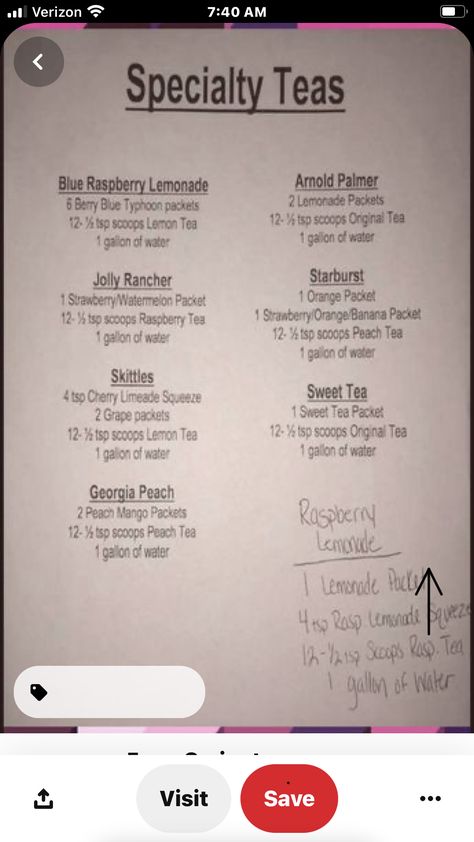 Verizon
7:40 AM
Specialty Teas
Blue Raspberry Lemonade
6 Berry Blue Typhoon packets
12- ½ tsp scoops Lemon Tea
1 gallon of water
Jolly Rancher
1 Strawberry/Watermelon Packet
12- ½ tsp scoops Raspberry Tea
1 gallon of water
Skittles
4 tsp Cherry Limeade Squeeze
2 Grape packets
12- ½ tsp scoops Lemon Tea
1 gallon of water
Georgia Peach
2 Peach Mango Packets
12- ½ tsp scoops Peach Tea
1 gallon of water
Arnold Palmer
2 Lemonade Packets
12- ½ tsp scoops Original Tea
1 gallon of water
Starburst
1 Orange Packet
1 Strawberry/Orange/Banana Packet
12- ½ tsp scoops Peach Tea
1 gallon of water
Sweet Tea
1 Sweet Tea Packet
12- ½ tsp scoops Original Tea
1 gallon of water
Raspberry
Lemonade
1 Lemonade Packet
4 tsp Rasp Lemonade Squeeze
12-½ tsp Scoops Rasp. Tea
1 gallon of Water
Visit
Save